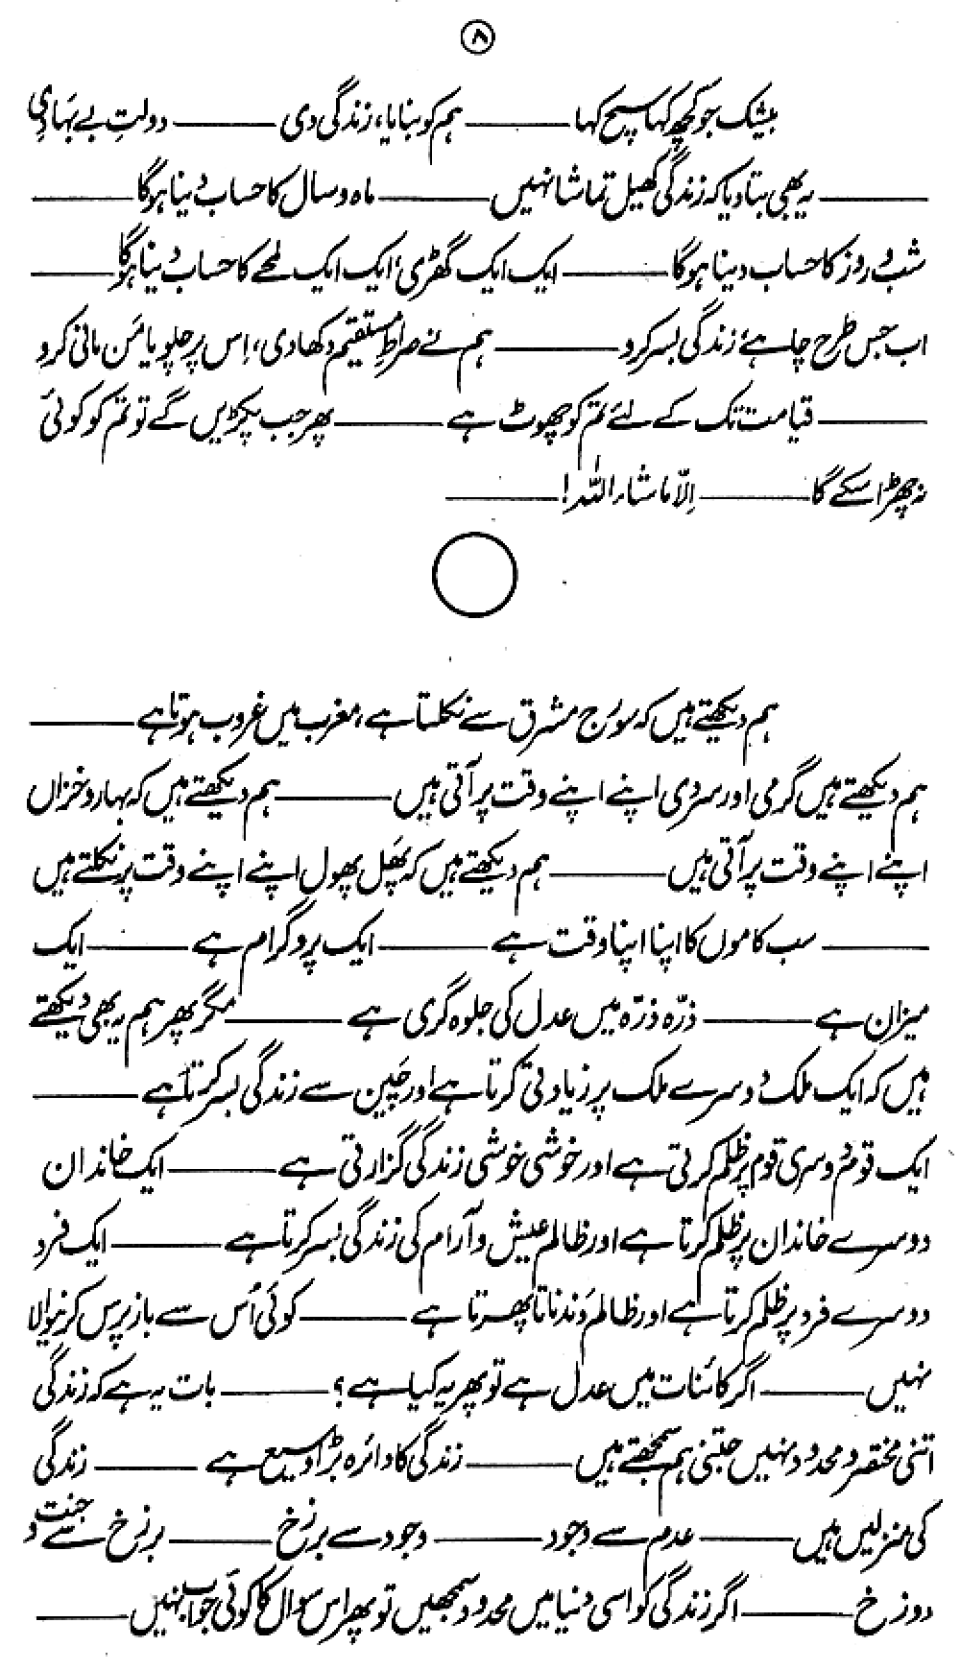 ۸
بیشک جو کچھ کہا سچ کہا ——— ہم کو بنایا، زندگی دی ——— دولتِ بے بہا دی
——— یہ بھی بتا دیا کہ زندگی کھیل تماشا نہیں ——— ماہ و سال کا حساب دینا ہوگا ———
شب و روز کا حساب دینا ہوگا ——— ایک ایک گھڑی، ایک ایک لمحے کا حساب دینا ہوگا ———
اب جس طرح چاہے زندگی بسر کرو ——— ہم نے صراطِ مستقیم دکھا دی، اِس پر چلو یا مَن مانی کرو
——— قیامت تک کے لئے تم کو چھوٹ ہے ——— پھر جب پکڑیں گے تو تم کو کوئی
نہ چھڑا سکے گا ——— اِلّا ماشاء اللہ! ———
ہم دیکھتے ہیں کہ سورج مشرق سے نکلتا ہے، مغرب میں غروب ہوتا ہے ———
ہم دیکھتے ہیں گرمی اور سردی اپنے اپنے وقت پر آتی ہیں ——— ہم دیکھتے ہیں کہ بہار و خزاں
اپنے اپنے وقت پر آتی ہیں ——— ہم دیکھتے ہیں کہ پھَل پھول اپنے اپنے وقت پر نکلتے ہیں
——— سب کاموں کا اپنا اپنا وقت ہے ——— ایک پروگرام ہے ——— ایک
میزان ہے ——— ذرّہ ذرّہ میں عدل کی جلوہ گری ہے ——— مگر پھر ہم یہ بھی دیکھتے
ہیں کہ ایک ملک دوسرے ملک پر زیادتی کرتا ہے اور چَین سے زندگی بسر کرتا ہے ———
ایک قوم دوسری قوم پر ظلم کرتی ہے اور خوشی خوشی زندگی گزارتی ہے ——— ایک خاندان
دوسرے خاندان پر ظلم کرتا ہے اور ظالم عیش و آرام کی زندگی بسر کرتا ہے ——— ایک فرد
دوسرے فرد پر ظلم کرتا ہے اور ظالم دَندناتا پھرتا ہے ——— کوئی اُس سے باز پرس کرنیوالا
نہیں ——— اگر کائنات میں عدل ہے تو پھر یہ کیا ہے؟ ——— بات یہ ہے کہ زندگی
اتنی مختصر و محدود نہیں جتنی ہم سمجھتے ہیں ——— زندگی کا دائرہ بڑا وسیع ہے ——— زندگی
کی منزلیں ہیں ——— عدم سے وجود ——— وجود سے برزخ ——— برزخ سے جنت و
دوزخ ——— اگر زندگی کو اسی دنیا میں محدود سمجھیں تو پھر اس سوال کا کوئی جواب نہیں ———